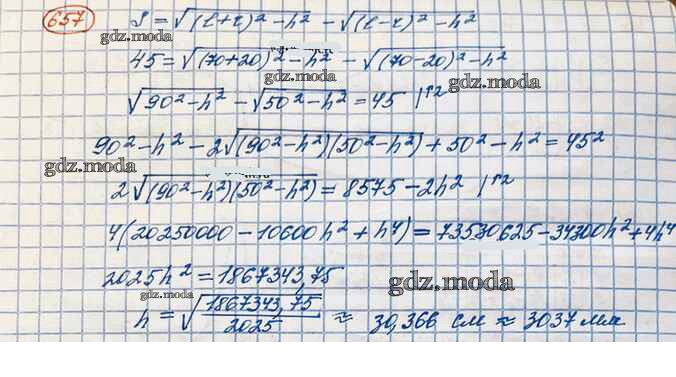 657
S = √(l+r)² - h² - √(l-r)² - h²
gdz.moda
gdz.moda
45 = √(70+20)² - h² - √(70-20)² - h²
gdz.moda
√90² - h² - √50² - h² = 45 |↑²
gdz.moda
90² - h² - 2√(90² - h²)(50² - h²) + 50² - h² = 45²
gdz.moda
2√(90² - h²)(50² - h²) = 8575 - 2h² |↑²
4(20250000 - 10600h² + h⁴) = 73530625 - 34300h² + 4h⁴
gdz.moda
2025h² = 1867343,75
gdz.moda
gdz.moda
h = √1867343,75/2025 ≈ 30,366 см ≈ 3037 мм